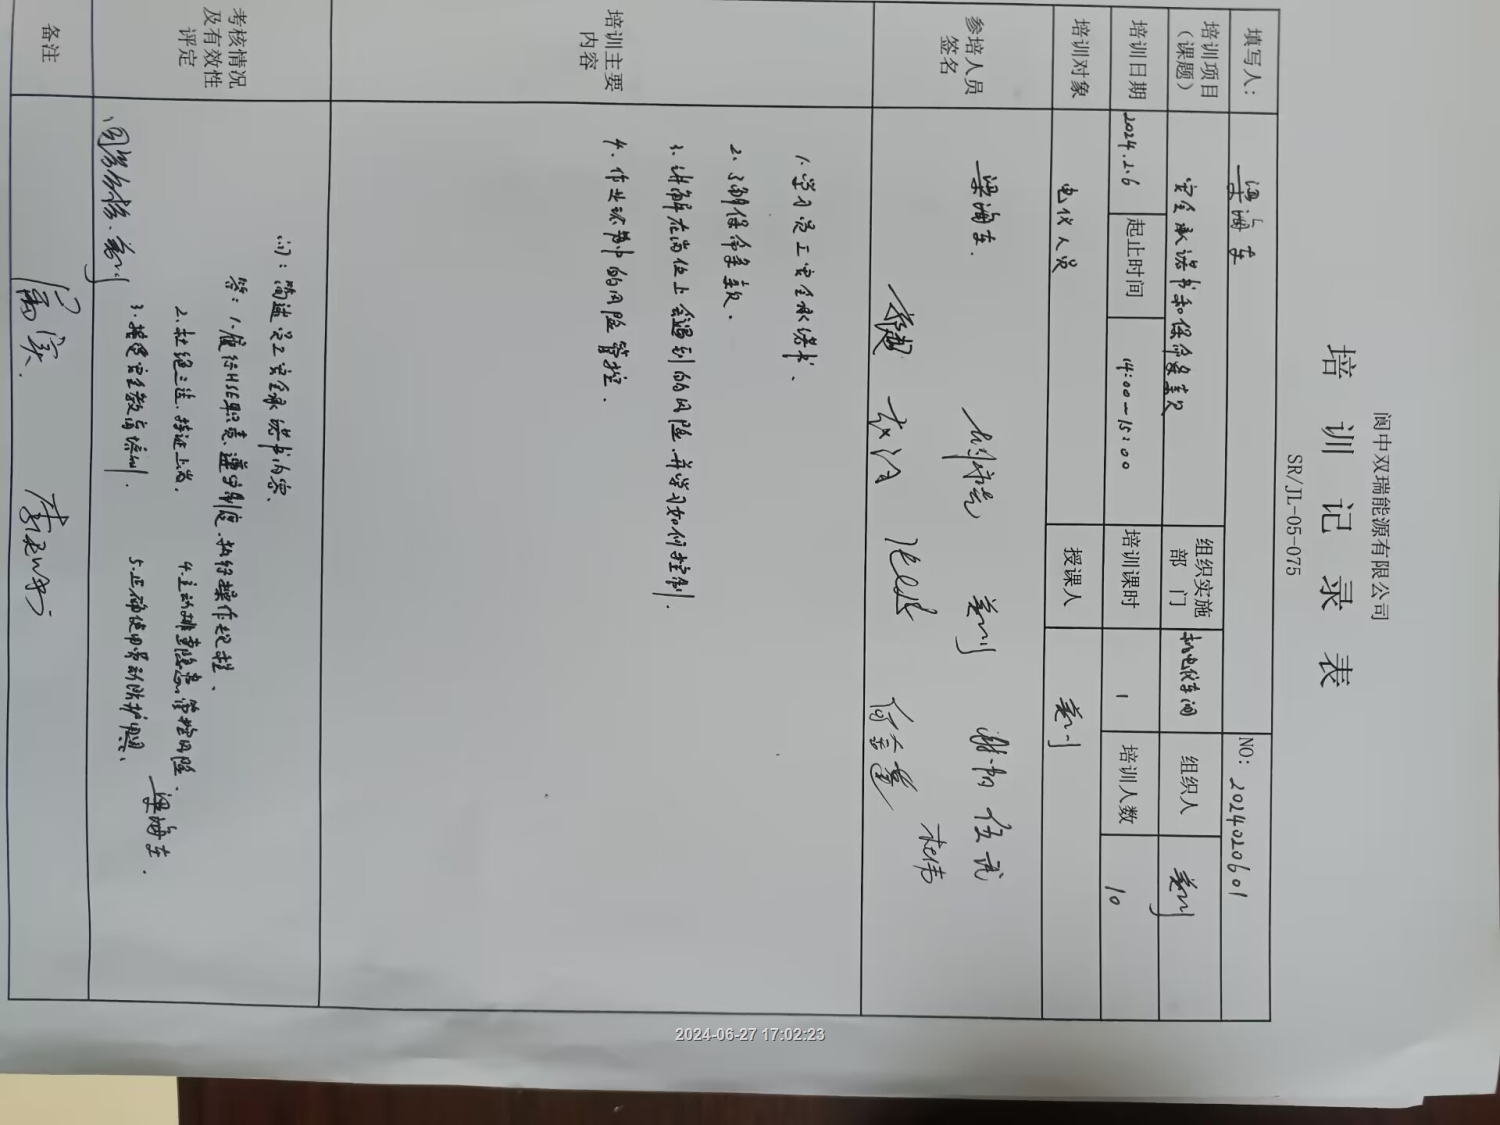 阆中双瑞能源有限公司
培训记录表
SR/JL-05-075
填写人: 梁海东 NO: 2024020601
培训项目(课题) 安全承诺书和保命条款 组织实施部门 机电仪车间 组织人 姜川
培训日期 2024.2.6 起止时间 14:00-15:00 培训课时 1 培训人数 10
培训对象 电仪人员 授课人 姜川
参培人员签名 梁海东. 姜川 谢韬 伍武
何金蔓 杜伟
培训主要内容
1.学习员工安全承诺书、
2.了解保命条款.
3.讲解在岗位上会遇到的风险.并学习如何控制.
4.作业环节中的风险管控.
考核情况及有效性评定
问:简述员工安全承诺书内容.
答:1.履行HSE职责.遵守制度.执行操作规程.
2.杜绝三违.持证上岗. 4.主动排查隐患,管控风险.
3.接受安全教育培训. 5.正确使用劳动防护用品.
梁海东.
姜川
备注
2024-06-27 17:02:23